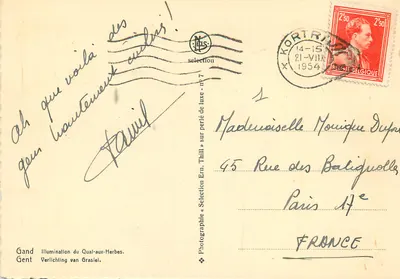 Ah que voilà des
gens hautement civilisés !
selection
KORTRIJK
14-15
21-VIII
1954
2F50
2F50
BELGIQUE
1
Mademoiselle Monique
45 Rue des Batignolles
Paris 17e
FRANCE
Photographie • Selection Ern. Thill • sur perlé de luxe • n° 7
Gand Illumination du Quai-aux-Herbes.
Gent Verlichting van Graslei.